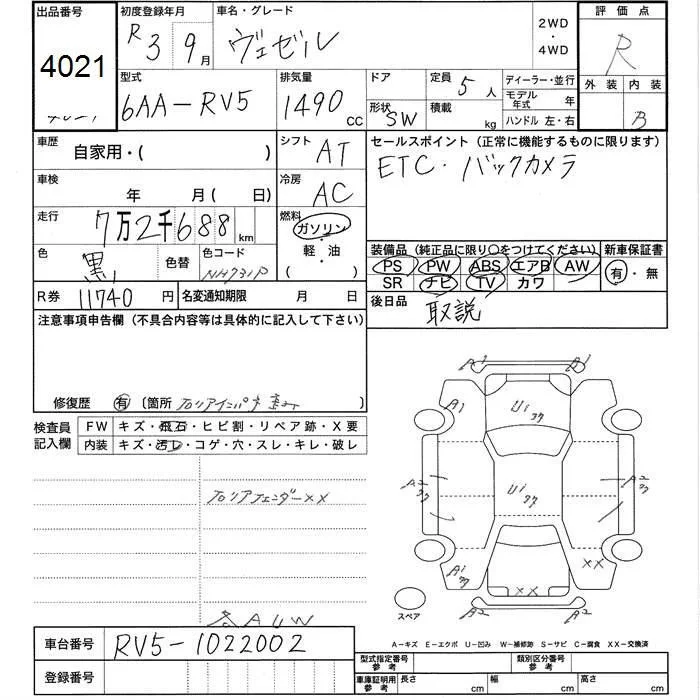 出品番号 初度登録年月 車名・グレード 評価点
4021 R3 9月 ヴェゼル 2WD・4WD R
外装 内装
B
型式 排気量 ドア 定員 ディーラー・並行
6AA-RV5 1490 cc 5人 モデル年式 年
形状 SW 積載 kg ハンドル 左・右
車歴 自家用・( ) シフト AT セールスポイント(正常に機能するものに限ります)
ETC・バックカメラ
車検 年 月(日) 冷房 AC
走行 7万2千688km 燃料 ガソリン・軽・油・( )
色 黒 色替 色コード NH731P
装備品(純正品に限り○をつけてください) 新車保証書
PS PW ABS エアB AW 有・無
SR ナビ TV カワ
R券 11740円 名変通知期限 月 日 後日品 取説
注意事項申告欄(不具合内容等は具体的に記入して下さい)
修復歴 有 〔箇所
検査員記入欄 FW キズ・飛石・ヒビ割・リペア跡・X要
内装 キズ・汚レ・コゲ・穴・スレ・キレ・破レ
右リアフェンダーXX
各AUW
A1 A1
A1 U1 ﾜｸ
A2 ﾜｸ U1 ﾜｸ A2 ﾜｸ
A1 ﾜｸ XX XX
スペア A2 A2
A-キズ E-エクボ U-凹み W-補修跡 S-サビ C-腐食 XX-交換済
車台番号 RV5-1022002
登録番号
型式指定番号参考 類別区分番号参考
車庫証明用参考 長さ cm 幅 cm 高さ cm